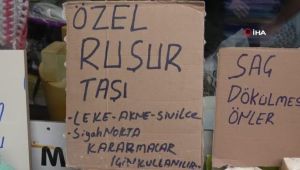 İHA
ÖZEL
RUSUR
TAŞI
-LEKE-AKNE-SİVİLCE
-SiyahNOKTA
KARARMALAR
İÇİNKULLANILIR
SAÇ
DÖKÜLMES
ÖNLER